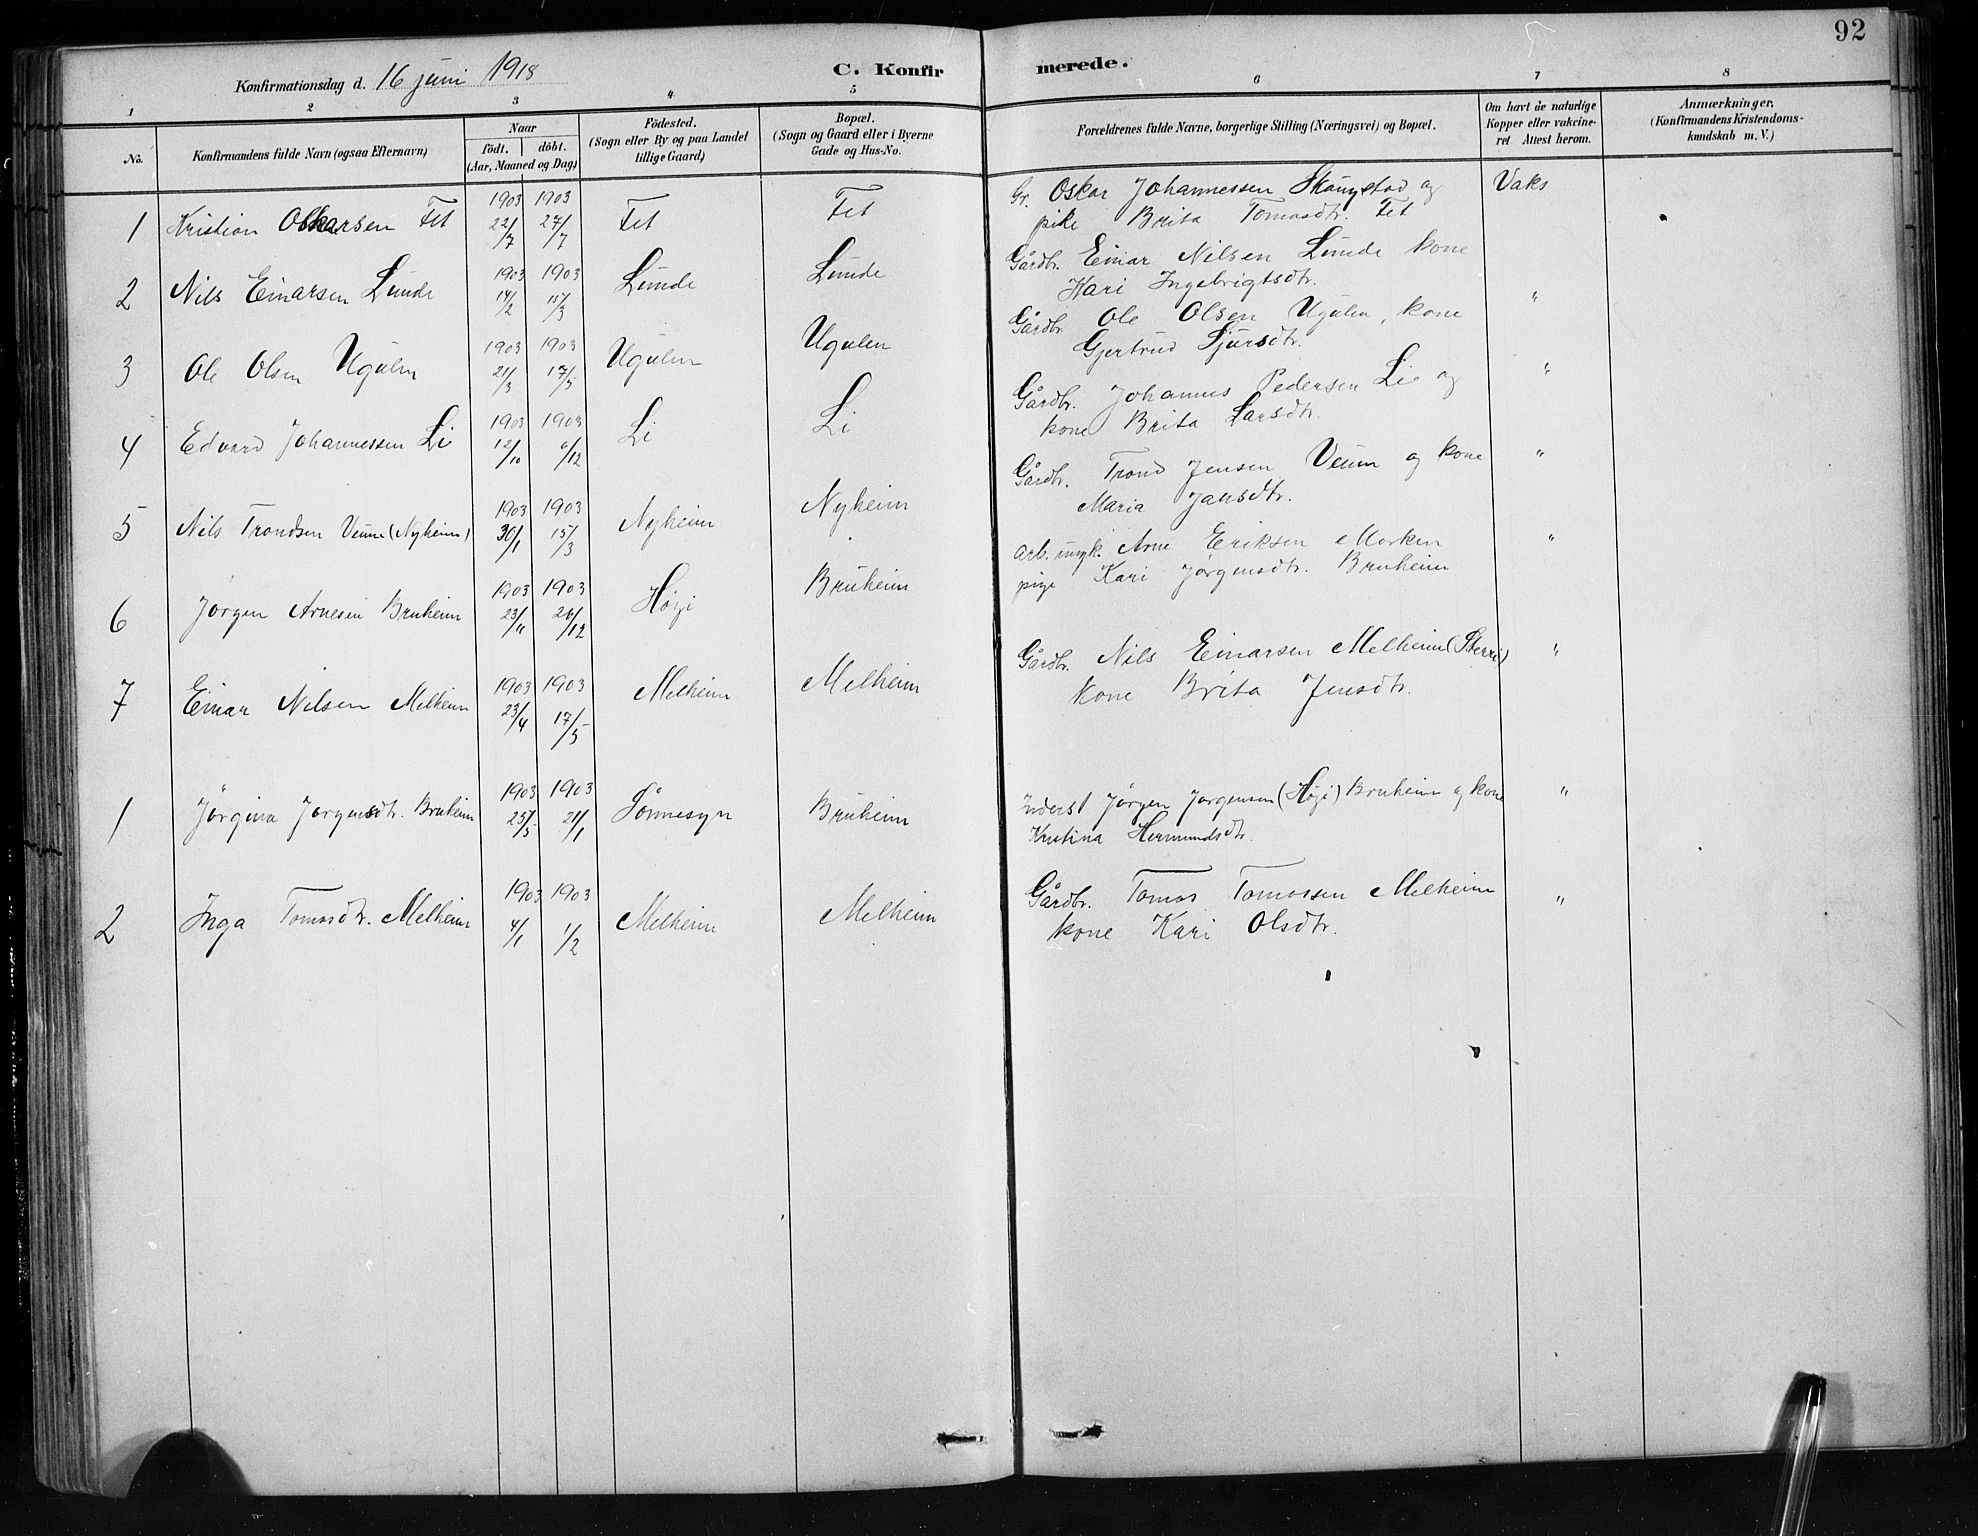 92
Konfirmationsdag d. 16 juni 1918
C. Konfirmerede.
1 2 3 4 5 6 7 8
No.
Konfirmandens fulde Navn (ogsaa Efternavn)
Naar
födt. döbt.
(Aar, Maaned og Dag)
Födested.
(Sogn eller By og paa Landet
tillige Gaard)
Bopæl.
(Sogn og Gaard eller i Byerne
Gade og Hus-No.
Forældrenes fulde Navne, borgerlige Stilling (Næringsvei) og Bopæl.
Om havt de naturlige
Kopper eller vakcine-
ret Attest herom.
Anmærkninger.
(Konfirmandens Kristendoms-
kundskab m. V.)
1 Kristian Oskarsen Fet 1903 22/7 1903 27/7 Fet Fet Gr. Oskar Johannessen Skougstad og Vaks
pike Brita Tomasdtr. Fet
2 Nils Einarsen Lunde 1903 14/2 1903 15/3 Lunde Lunde Gårdbr. Einar Nilsen Lunde kone
Kari Ingebrigtsdtr. "
3 Ole Olsen Ugulen 1903 21/3 1903 17/5 Ugulen Ugulen Gårdbr. Ole Olsen Ugulen, kone
Gjertrud Sjursdtr. "
4 Edvard Johannessen Li 1903 12/10 1903 6/12 Li Li Gårdbr. Johannes Pedersen Li og
kone Brita Larsdtr. "
5 Nils Trondsen Veum (Nyheim) 1903 30/1 1903 15/3 Nyheim Nyheim Gårdbr. Trond Jensen Veum og kone
Maria Jansdtr. "
6 Jørgen Arnesen Bruheim 1903 23/11 1903 26/12 Høgi Bruheim arb. ungk. Arne Eriksen Morken
pige Kari Jørgensdtr. Bruheim
7 Einar Nilsen Melheim 1903 23/4 1903 17/5 Melheim Melheim Gårdbr. Nils Einarsen Melheim (Sterri) "
kone Brita Jensdtr.
1 Jørgina Jørgensdtr. Bruheim 1903 25/5 1903 21/1 Sønnesyn Bruheim Inderst Jørgen Jørgensen (Høgi) Bruheim og kone "
Kristina Hermundsdtr.
2 Inga Tomasdtr. Melheim 1903 4/1 1903 1/2 Melheim Melheim Gårdbr. Tomas Tomassen Melheim "
kone Kari Olsdtr.